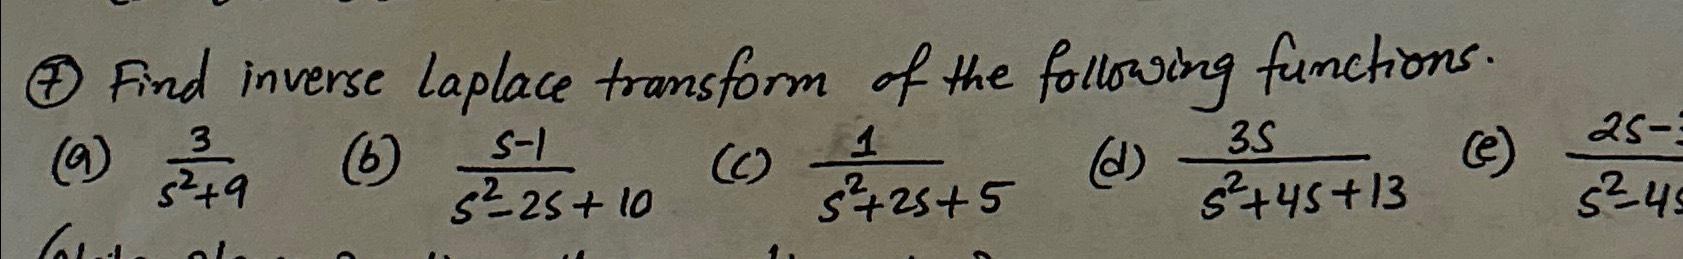 ⑦ Find inverse Laplace transform of the following functions.
(a) 3/(s²+9) (b) (s-1)/(s²-2s+10) (c) 1/(s²+2s+5) (d) 3s/(s²+4s+13) (e) (2s-)/(s²-4s